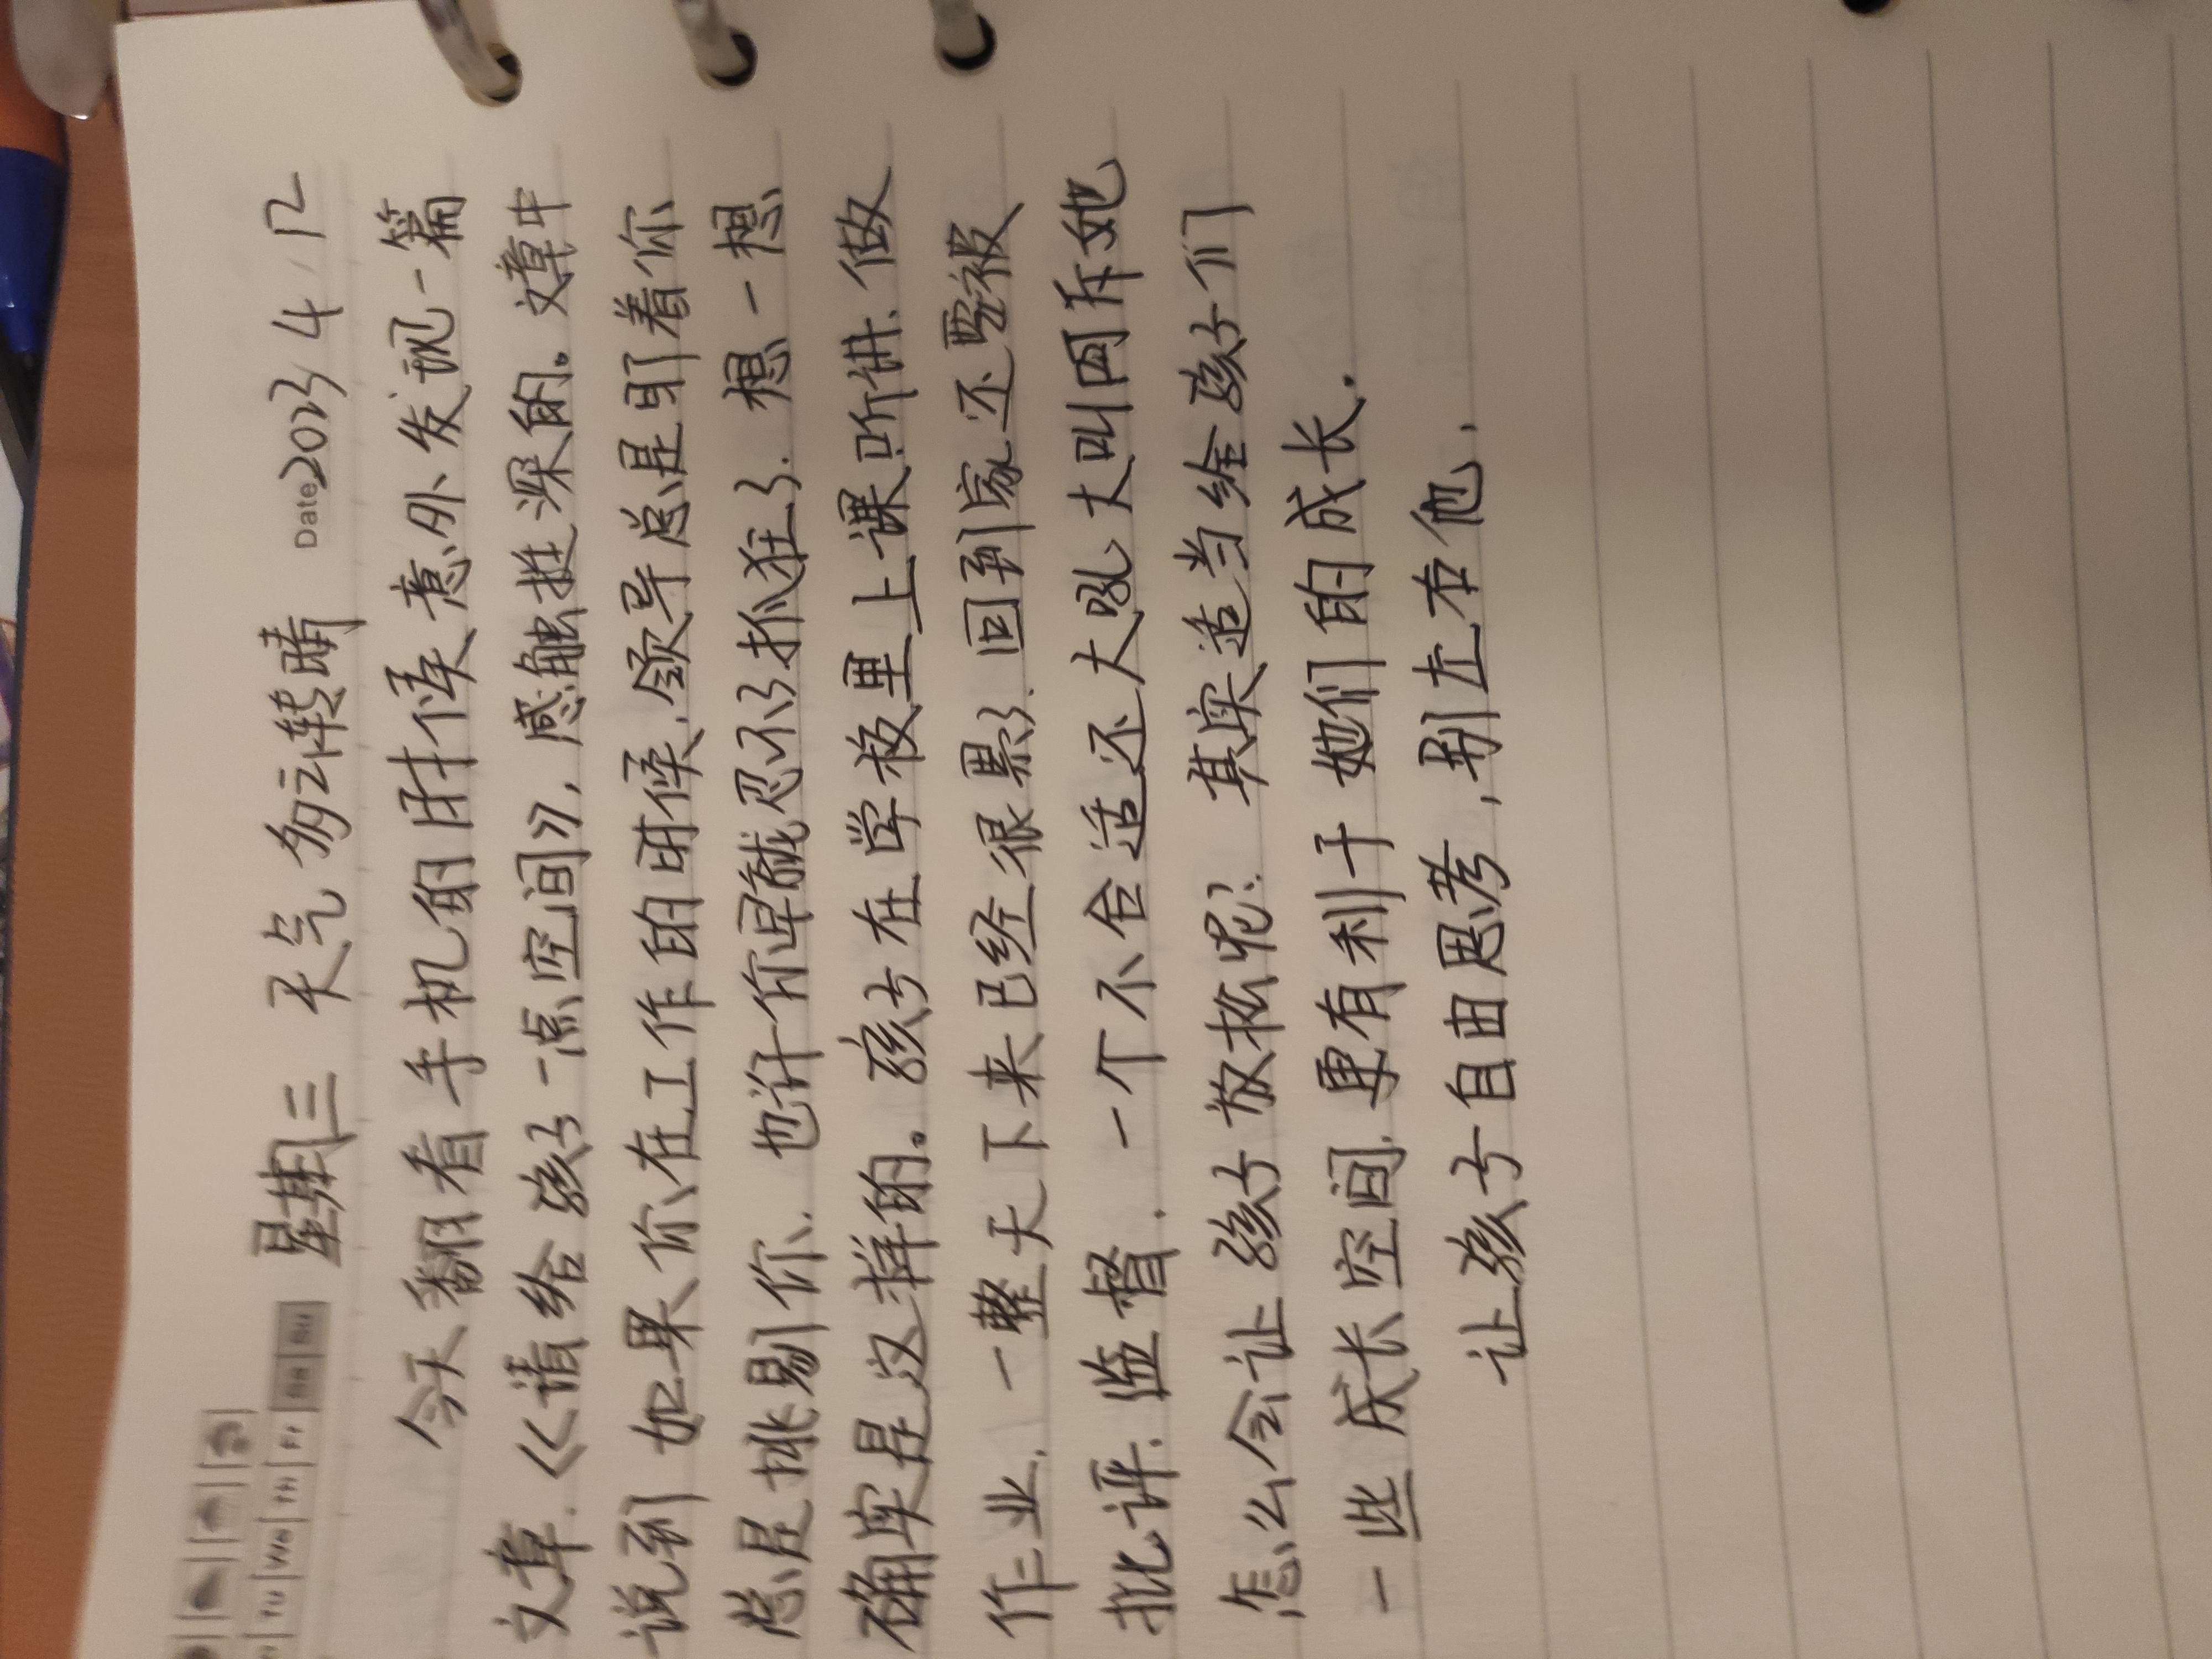 Tu We Th Fr Sa Su 星期三 天气多云转晴 Date 2023 4.12
今天翻看手机的时候意外发现一篇
文章.《请给孩子一点空间》,感触挺深的。文章中
说到如果你在工作的时候.领导总是盯着你
总是挑剔你.也许你早就忍不了抓狂了.想一想
确实是这样的。孩子在学校里上课听讲.做
作业.一整天下来已经很累了.回到家还要被
批评.监督.一个不合适还大吼大叫呵斥她
怎么会让孩子放松呢?其实适当给孩子们
一些成长空间.更有利于她们的成长.
让孩子自由思考,别左右他.